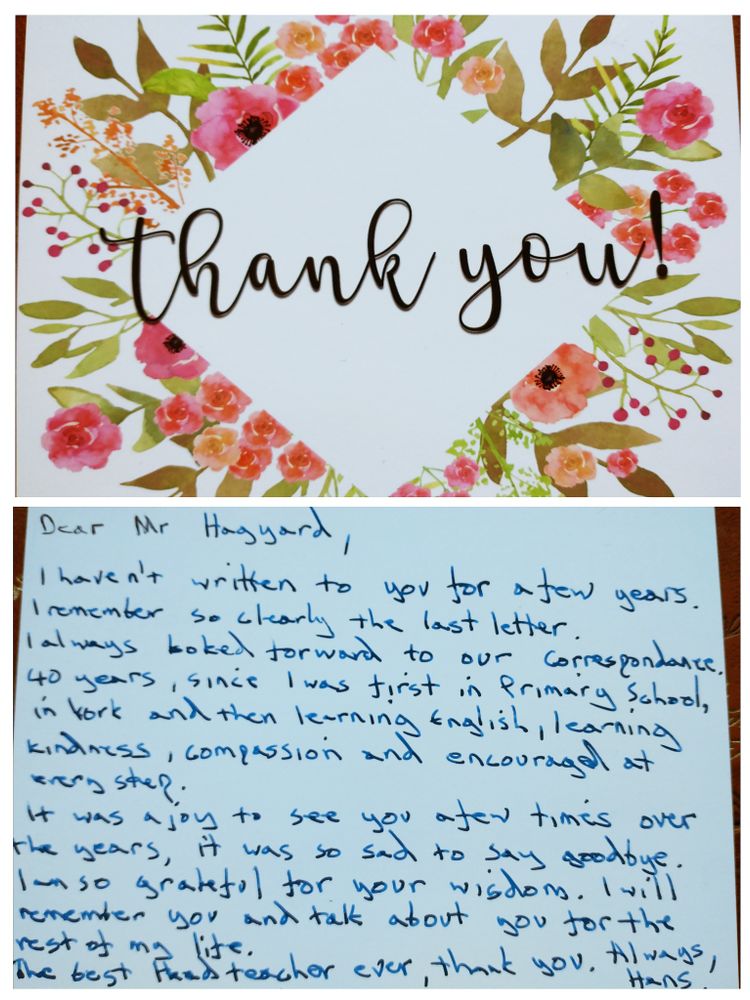 thank you!
Dear Mr Hagyard,
I haven't written to you for a few years.
I remember so clearly the last letter.
I always looked forward to our correspondance.
40 years, since I was first in Primary School,
in York and then learning English, learning
kindness, compassion and encouraged at
every step.
It was a joy to see you a few times over
the years, it was so sad to say goodbye.
I am so grateful for your wisdom. I will
remember you and talk about you for the
rest of my life.
The best Headteacher ever, thank you. Always,
Hans.